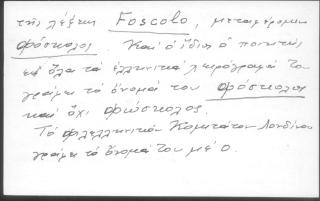 τῆς λέξης Foscolo, μεταφέρομεν
Φόσκολος Καὶ ὁ ἴδιος ὁ ποιητὴς
εἰς ὅλα τὰ ἑλληνικὰ χειρόγραφά του
γράφει τὸ ὄνομά του Φόσκολος
καὶ ὄχι Φώσκολος.
Τὸ φιλελληνικὸν Κομιτάτον Λονδίνου
γράφει τὸ ὄνομά του μὲ ο.